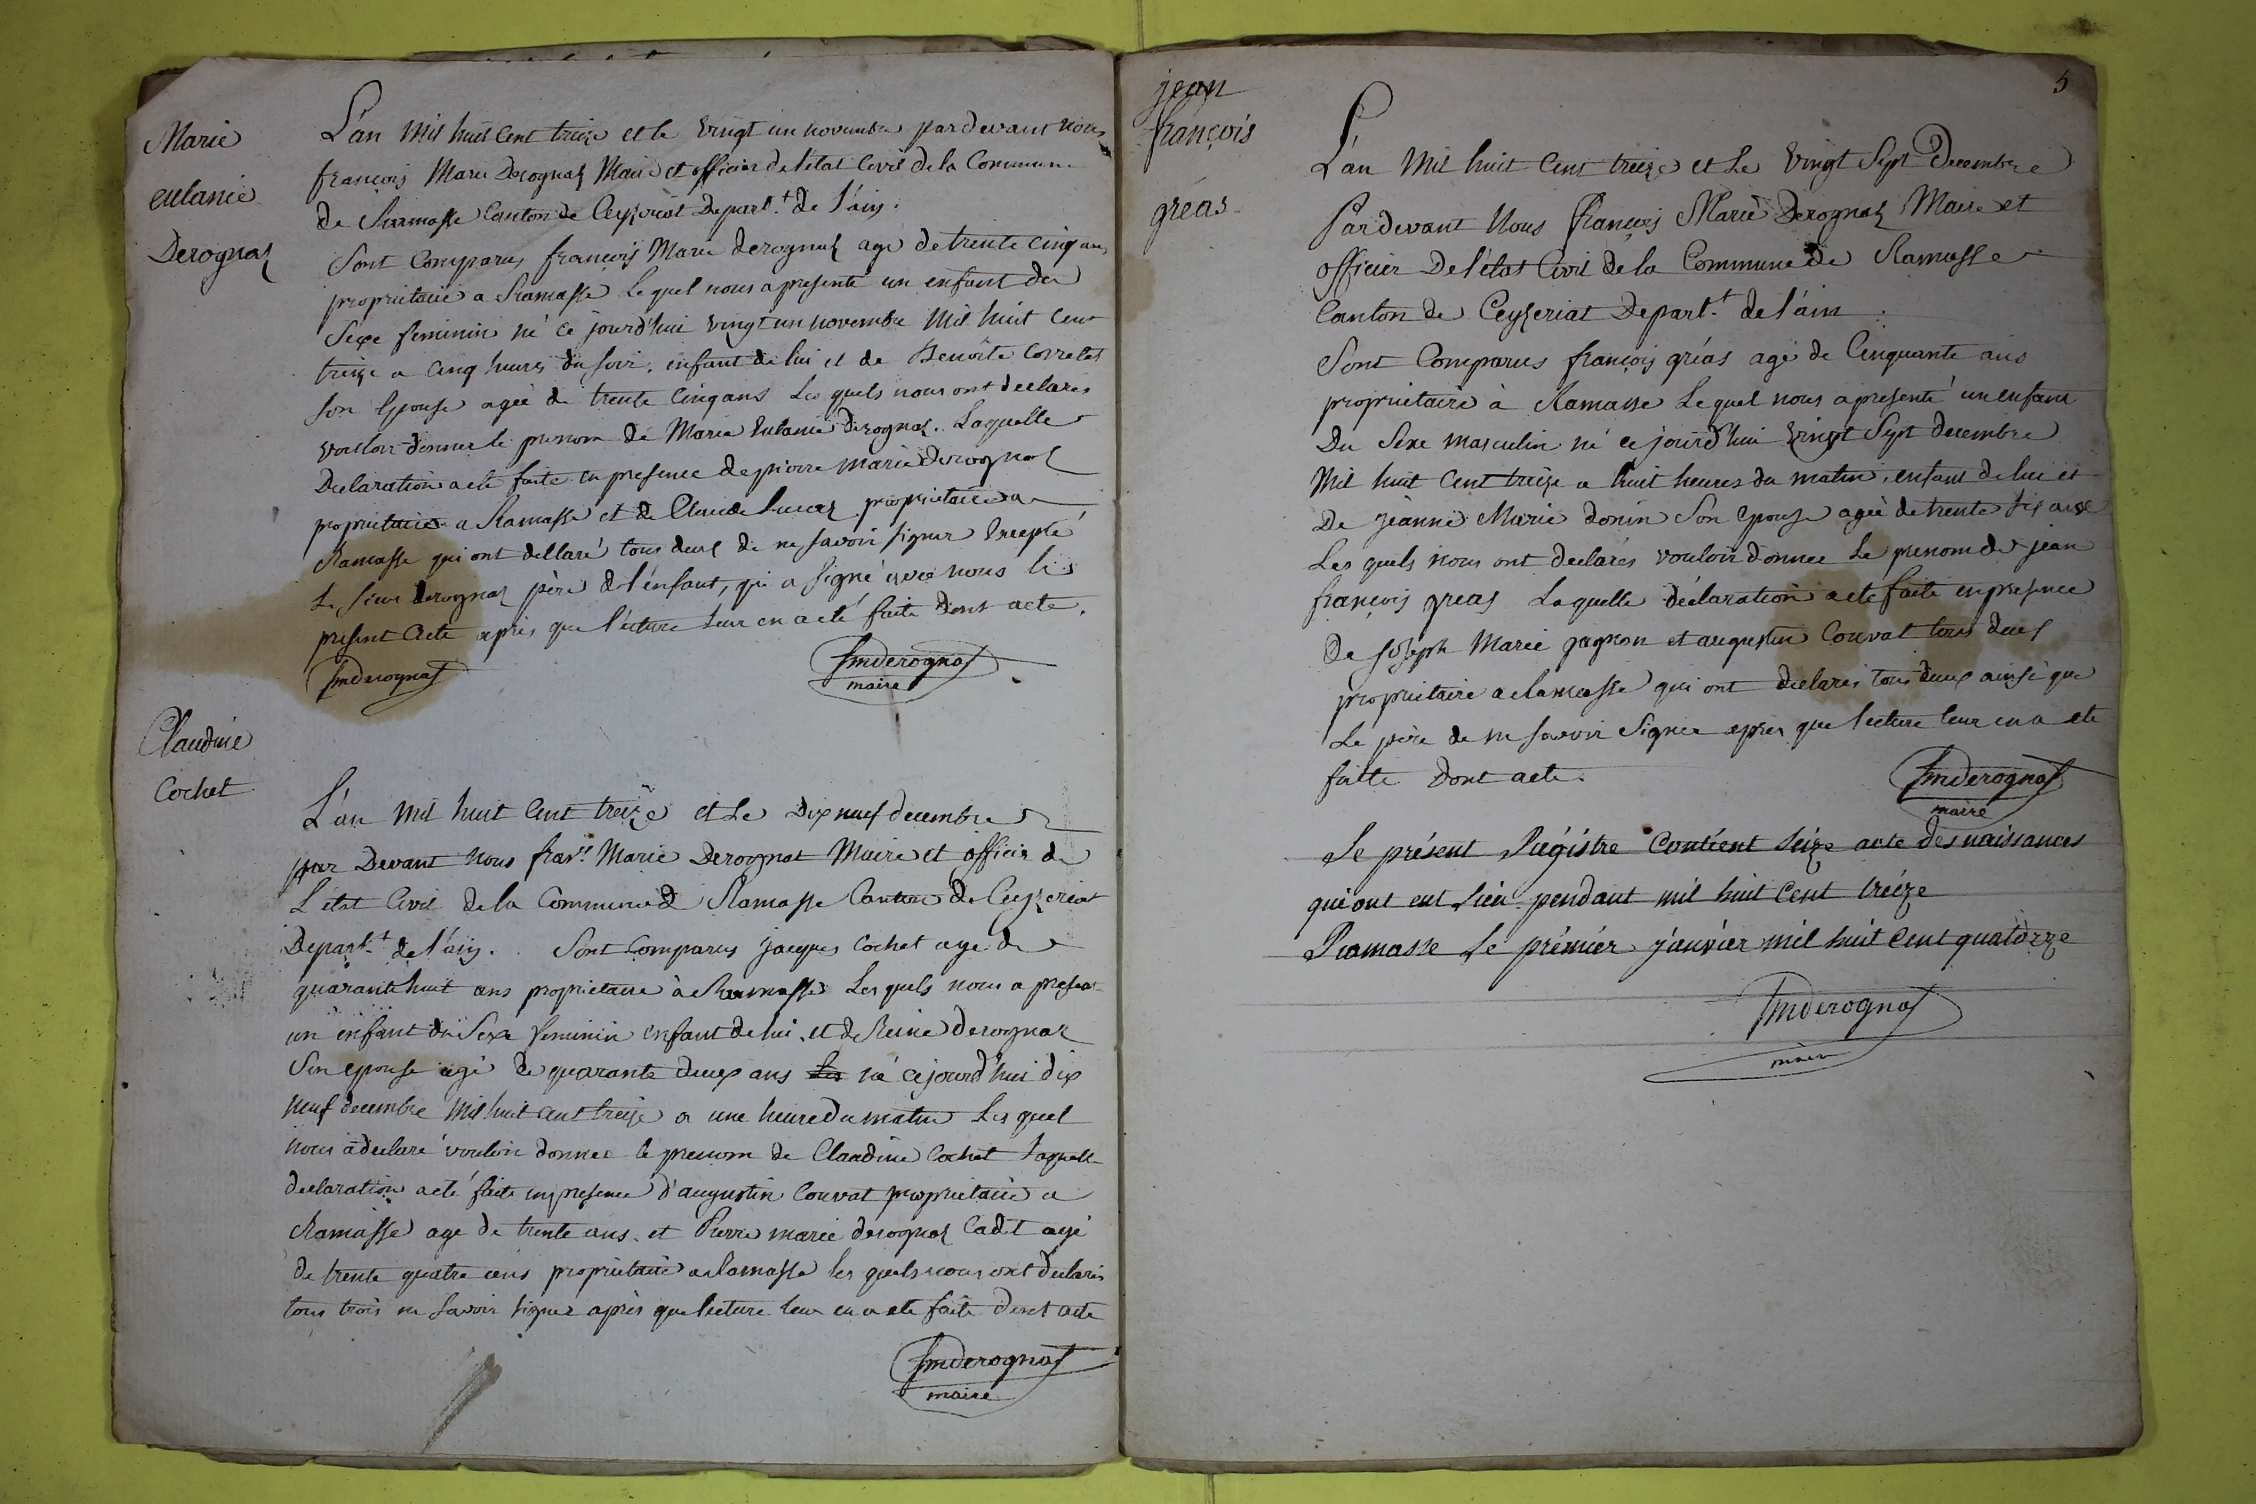 Marie
eulanie
Derognaz
L'an mil huit Cent treize et le vingt un novembre pardevant nous
françois Marie Derognaz Maire et officier de l'état Civil de la Commune
de Ramasse Canton de Ceyzeriat Depart.t de l'ain.
Sont Comparus françois Marie derognaz agé de trente cinq ans
proprietaire a Ramasse Lequel nous a presenté un enfant du
Sexe feminin né ce jourd'hui vingt un novembre Mil huit cent
treize a cinq heures du soir, enfant de lui et de Benoite Corretet
son Epouse agée de trente Cinq ans Les quels nous ont declarés
vouloir donner le prenom de Marie Eulanie derognaz. Laquelle
Declaration a eté faite en presence de pierre marie Derognaz
proprietaire a Ramasse et de Claude proprietaire a
Ramasse qui ont dellaré tous deux de ne savoir signer Excepté
Le sieur derognaz père de l'enfant, qui a signé avec nous le
present Acte après que l'ecture leur en a eté faite dont acte.
fmderognaz
fmderognaz
maire
Claudine
Cochet
L'an mil huit Cent treize et Le Dix neuf decembre
par Devant nous fran.s Marie Derognat Maire et officier de
L'etat Civil de la Commune de Ramasse Canton de Ceyzeriat
Depart.t de l'ain. Sont Comparus jacques Cochet age de
quarante huit ans proprietaire à Ramasse Lesquels nous a presen
un enfant du Sexe feminin enfant de lui et de Reine derognaz
Son epouse agé de quarante deux ans né ce jourd'hui dix
neuf decembre mil huit cent treize a une heure du matin Les quel
nous a declaré vouloir donner le prenom de Claudine Cochet Laquelle
declaration a eté faite en presence d'augustin Couvat proprietaire a
Ramasse age de trente ans. et Pierre marie derognaz Cadet agé
de trente quatre ans proprietaire a Ramasse les quels nous ont declarés
tous trois ne savoir signer après que lecture leur en a ete faite dont acte
fmderognaz
maire
5
jean
françois
gréas
L'an Mil huit Cent treize et Le Vingt Sept Decembre
Pardevant Nous françois Marie Derognaz Maire et
officier De l'état Civil de la Commune de Ramasse
Canton de Ceyzeriat Depart.t de l'ain.
Sont Comparus françois gréas agé de Cinquante ans
proprietaire à Ramasse Lequel nous a presenté un enfant
Du Sexe masculin né ce jourd'hui Vingt Sept decembre
Mil huit Cent treize a huit heures du matin, enfant de lui et
De jeanne Marie donin Son epouse agée de trente six ans
Les quels nous ont declarés vouloir donner le prenom de jean
françois greas Laquelle déclaration a eté faite en presence
De joseph Marie gagnon et augustin Couvat tous deux
proprietaire a Ramasse qui ont declarés tous deux ainsi que
Le père de ne savoir Signer après que lecture leur en a ete
faite Dont acte.
fmderognaz
maire
Le présent Régistre Contient Seize acte des naissances
qui ont eut lieu pendant mil huit Cent treize
Ramasse Le prémiér janviér mil huit Cent quatorze
fmderognaz
maire